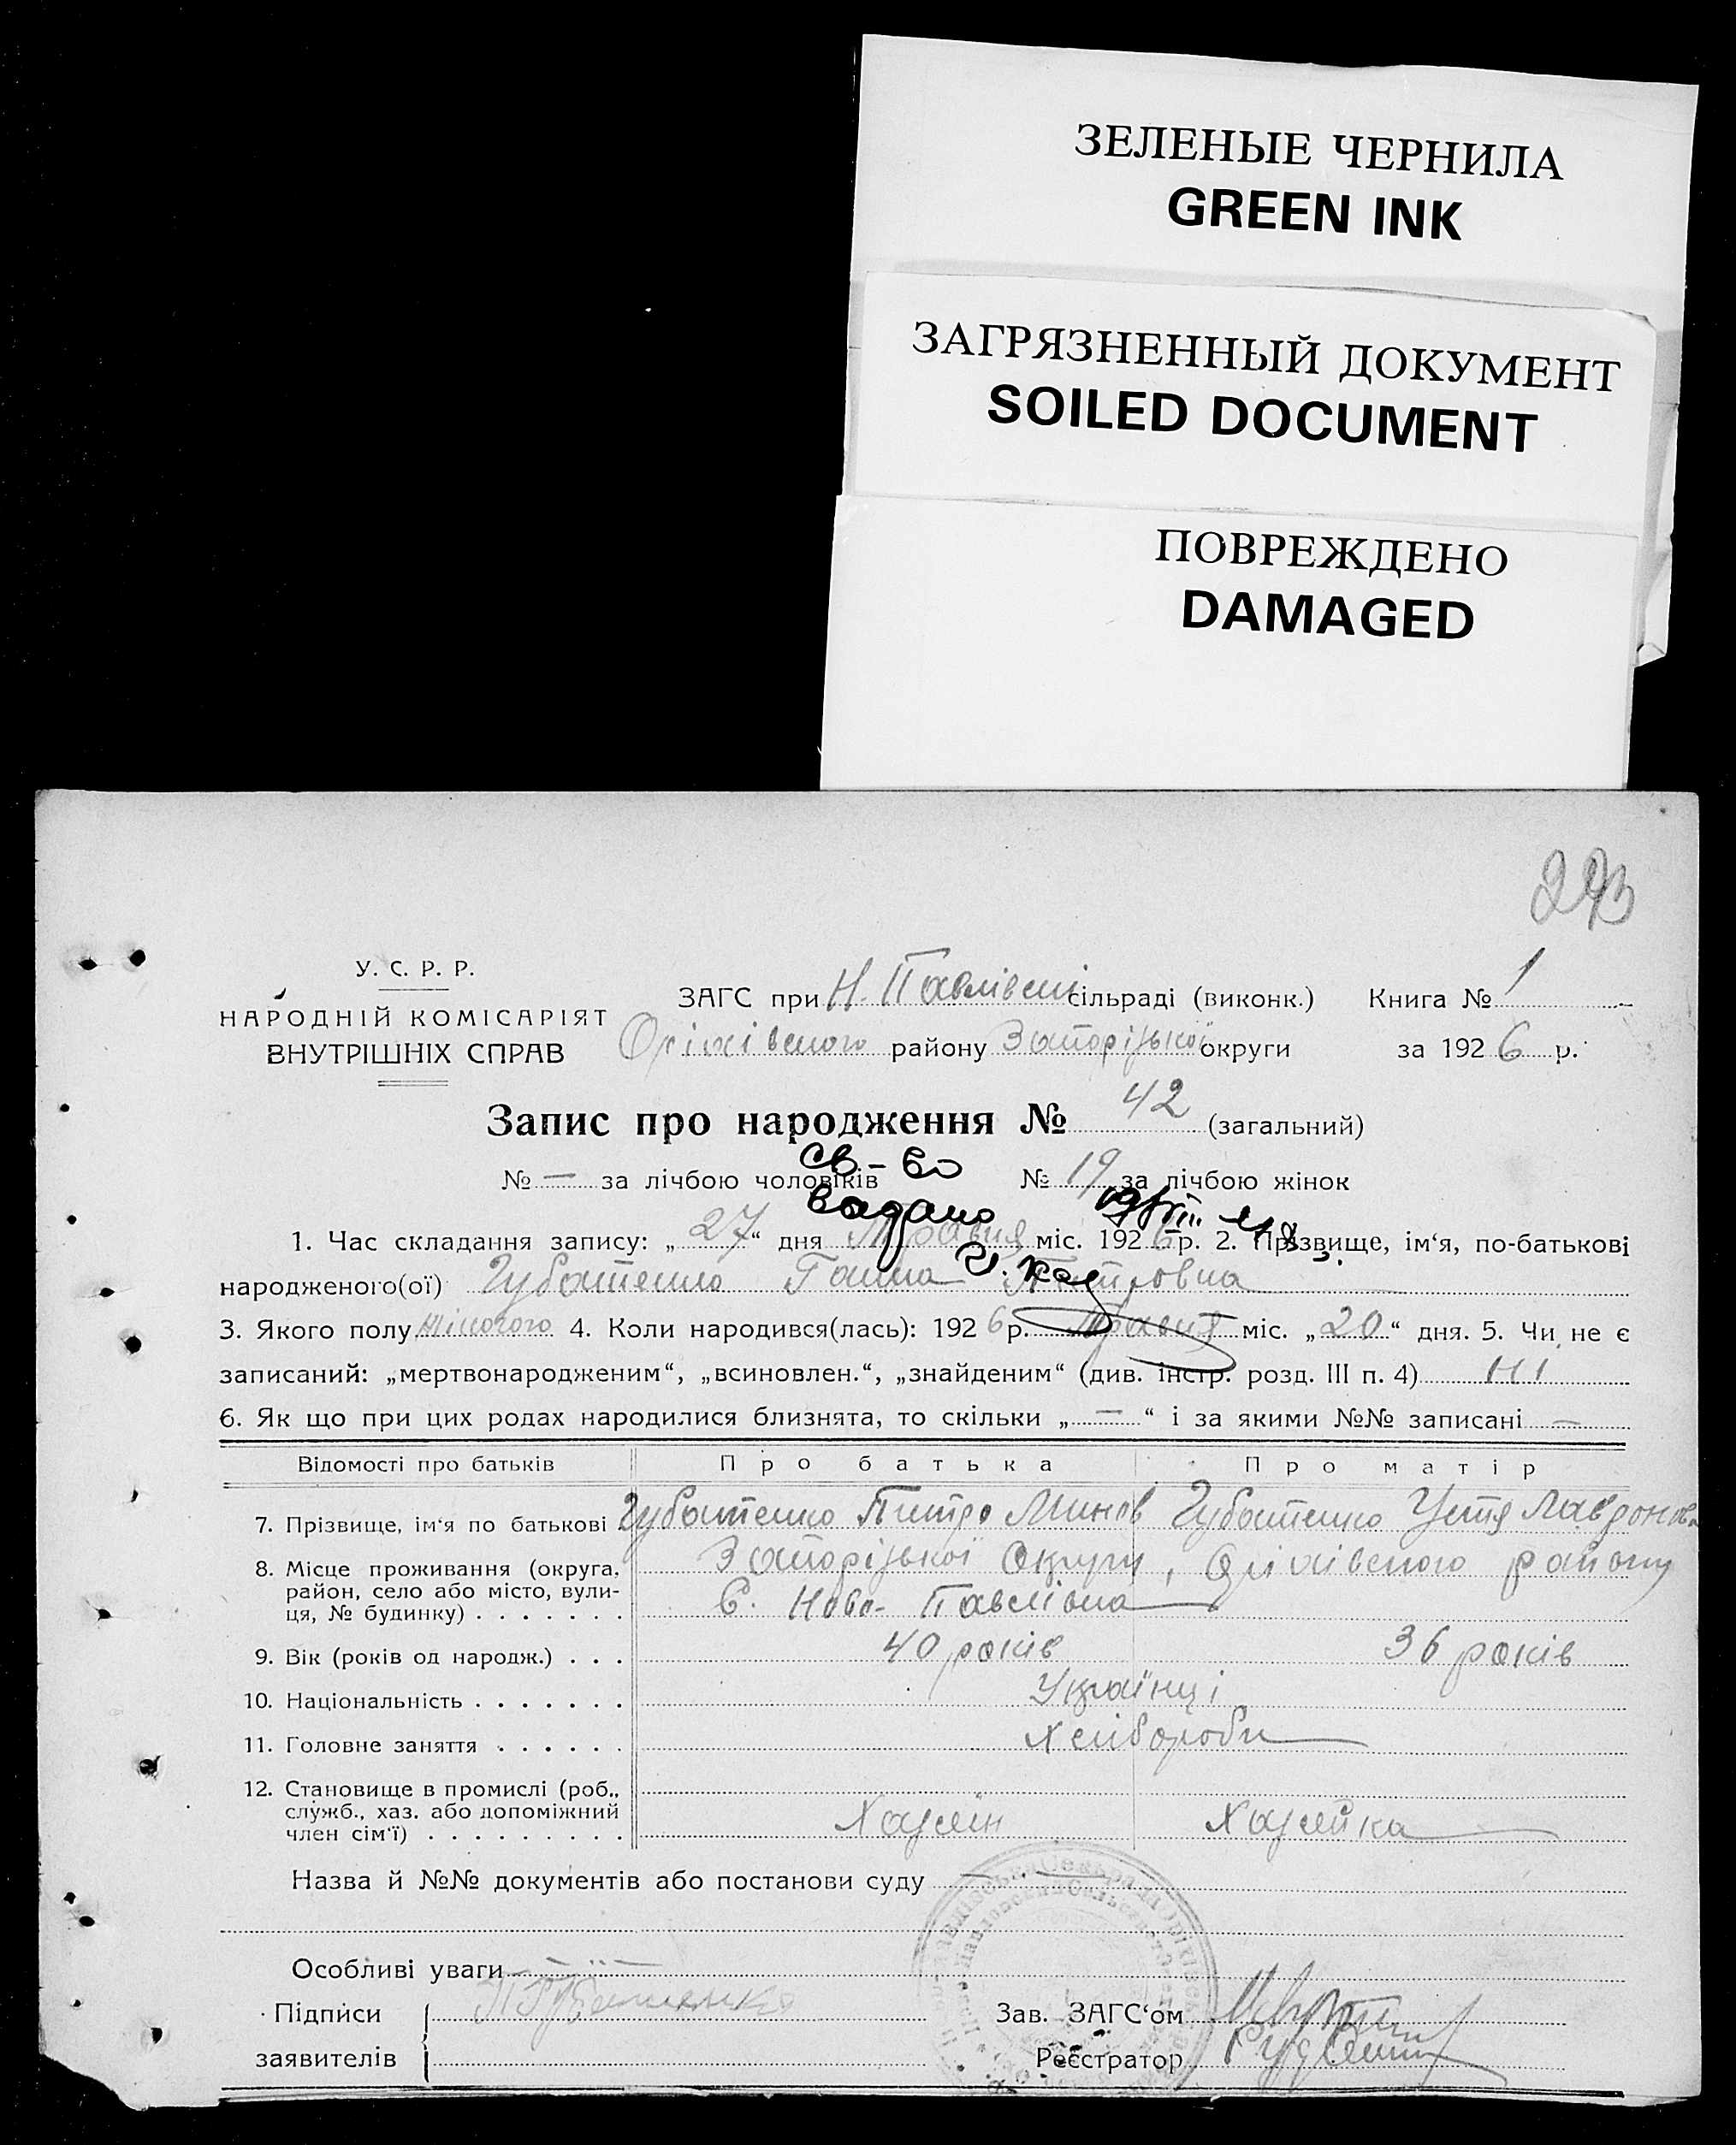 ЗЕЛЕНЫЕ ЧЕРНИЛА
GREEN INK
ЗАГРЯЗНЕННЫЙ ДОКУМЕНТ
SOILED DOCUMENT
ПОВРЕЖДЕНО
DAMAGED
У. С. Р. Р.
НАРОДНІЙ КОМІСАРІЯТ
ВНУТРІШНІХ СПРАВ
ЗАГС при Н. Павлівскі сільраді (виконк.) Книга № 1
Оріхівського району Запорізької округи за 1926 р.
Запис про народження № 42 (загальний)
№ — за лічбою чоловіків № 19 за лічбою жінок
св-во
1. Час складання запису: „27“ дня Травня міс. 1926 р. 2. Прізвище, ім‘я, по-батькові
народженого(ої) Губатенко Ганна Петровна
3. Якого полу жіночого 4. Коли народився(лась): 1926 р. Травня міс. „20“ дня. 5. Чи не є
записаний: „мертвонародженим“, „всиновлен.“, „знайденим“ (див. інстр. розд. III п. 4) Ні
6. Як що при цих родах народилися близнята, то скільки „—“ і за якими №№ записані —
Відомості про батьків Про батька Про матір
7. Прізвище, ім‘я по батькові Губатенко Петро Минов Губатенко Устя Лавронов.
8. Місце проживання (округа, район, село або місто, вули- ця, № будинку) Запорізької Округи, Оріхівского району
С. Ново-Павлівка
9. Вік (років од народж.) 40 років 36 років
10. Національність Українці
11. Головне заняття Хлібороби
12. Становище в промислі (роб., служб., хаз. або допоміжний член сім‘ї) Хазяїн Хазяйка
Назва й №№ документів або постанови суду
Особливі уваги
Підписи П Губатенко Зав. ЗАГС‘ом
заявителів Реєстратор